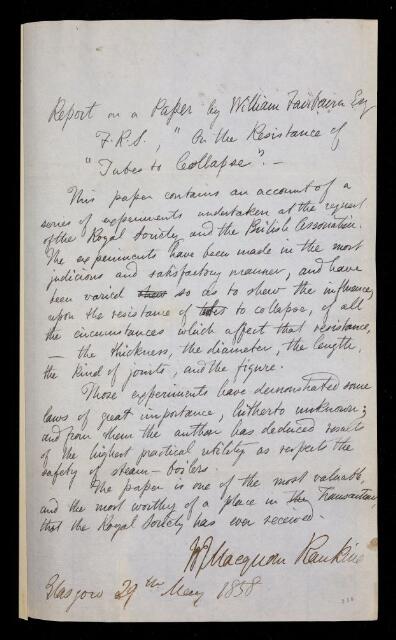 Report on a Paper by William Fairbairn Esq
F.R.S., "On the Resistance of
"Tubes to Collapse". —
This paper contains an account of a
series of experiments undertaken at the request
of the Royal Society and the British Association.
The experiments have been made in the most
judicious and satisfactory manner, and have
been varied so as to shew the influence,
upon the resistance of tubes to collapse, of all
the circumstances which affect that resistance,
— the thickness, the diameter, the length,
the kind of joints, and the figure.
Those experiments have demonstrated some
laws of great importance, hitherto unknown;
and from them the author has deduced results
of the highest practical utility as respects the
safety of steam-boilers.
The paper is one of the most valuable,
and the most worthy of a place in the Transactions,
that the Royal Society has ever received.
W J Macquorn Rankine
Glasgow 29th May 1858